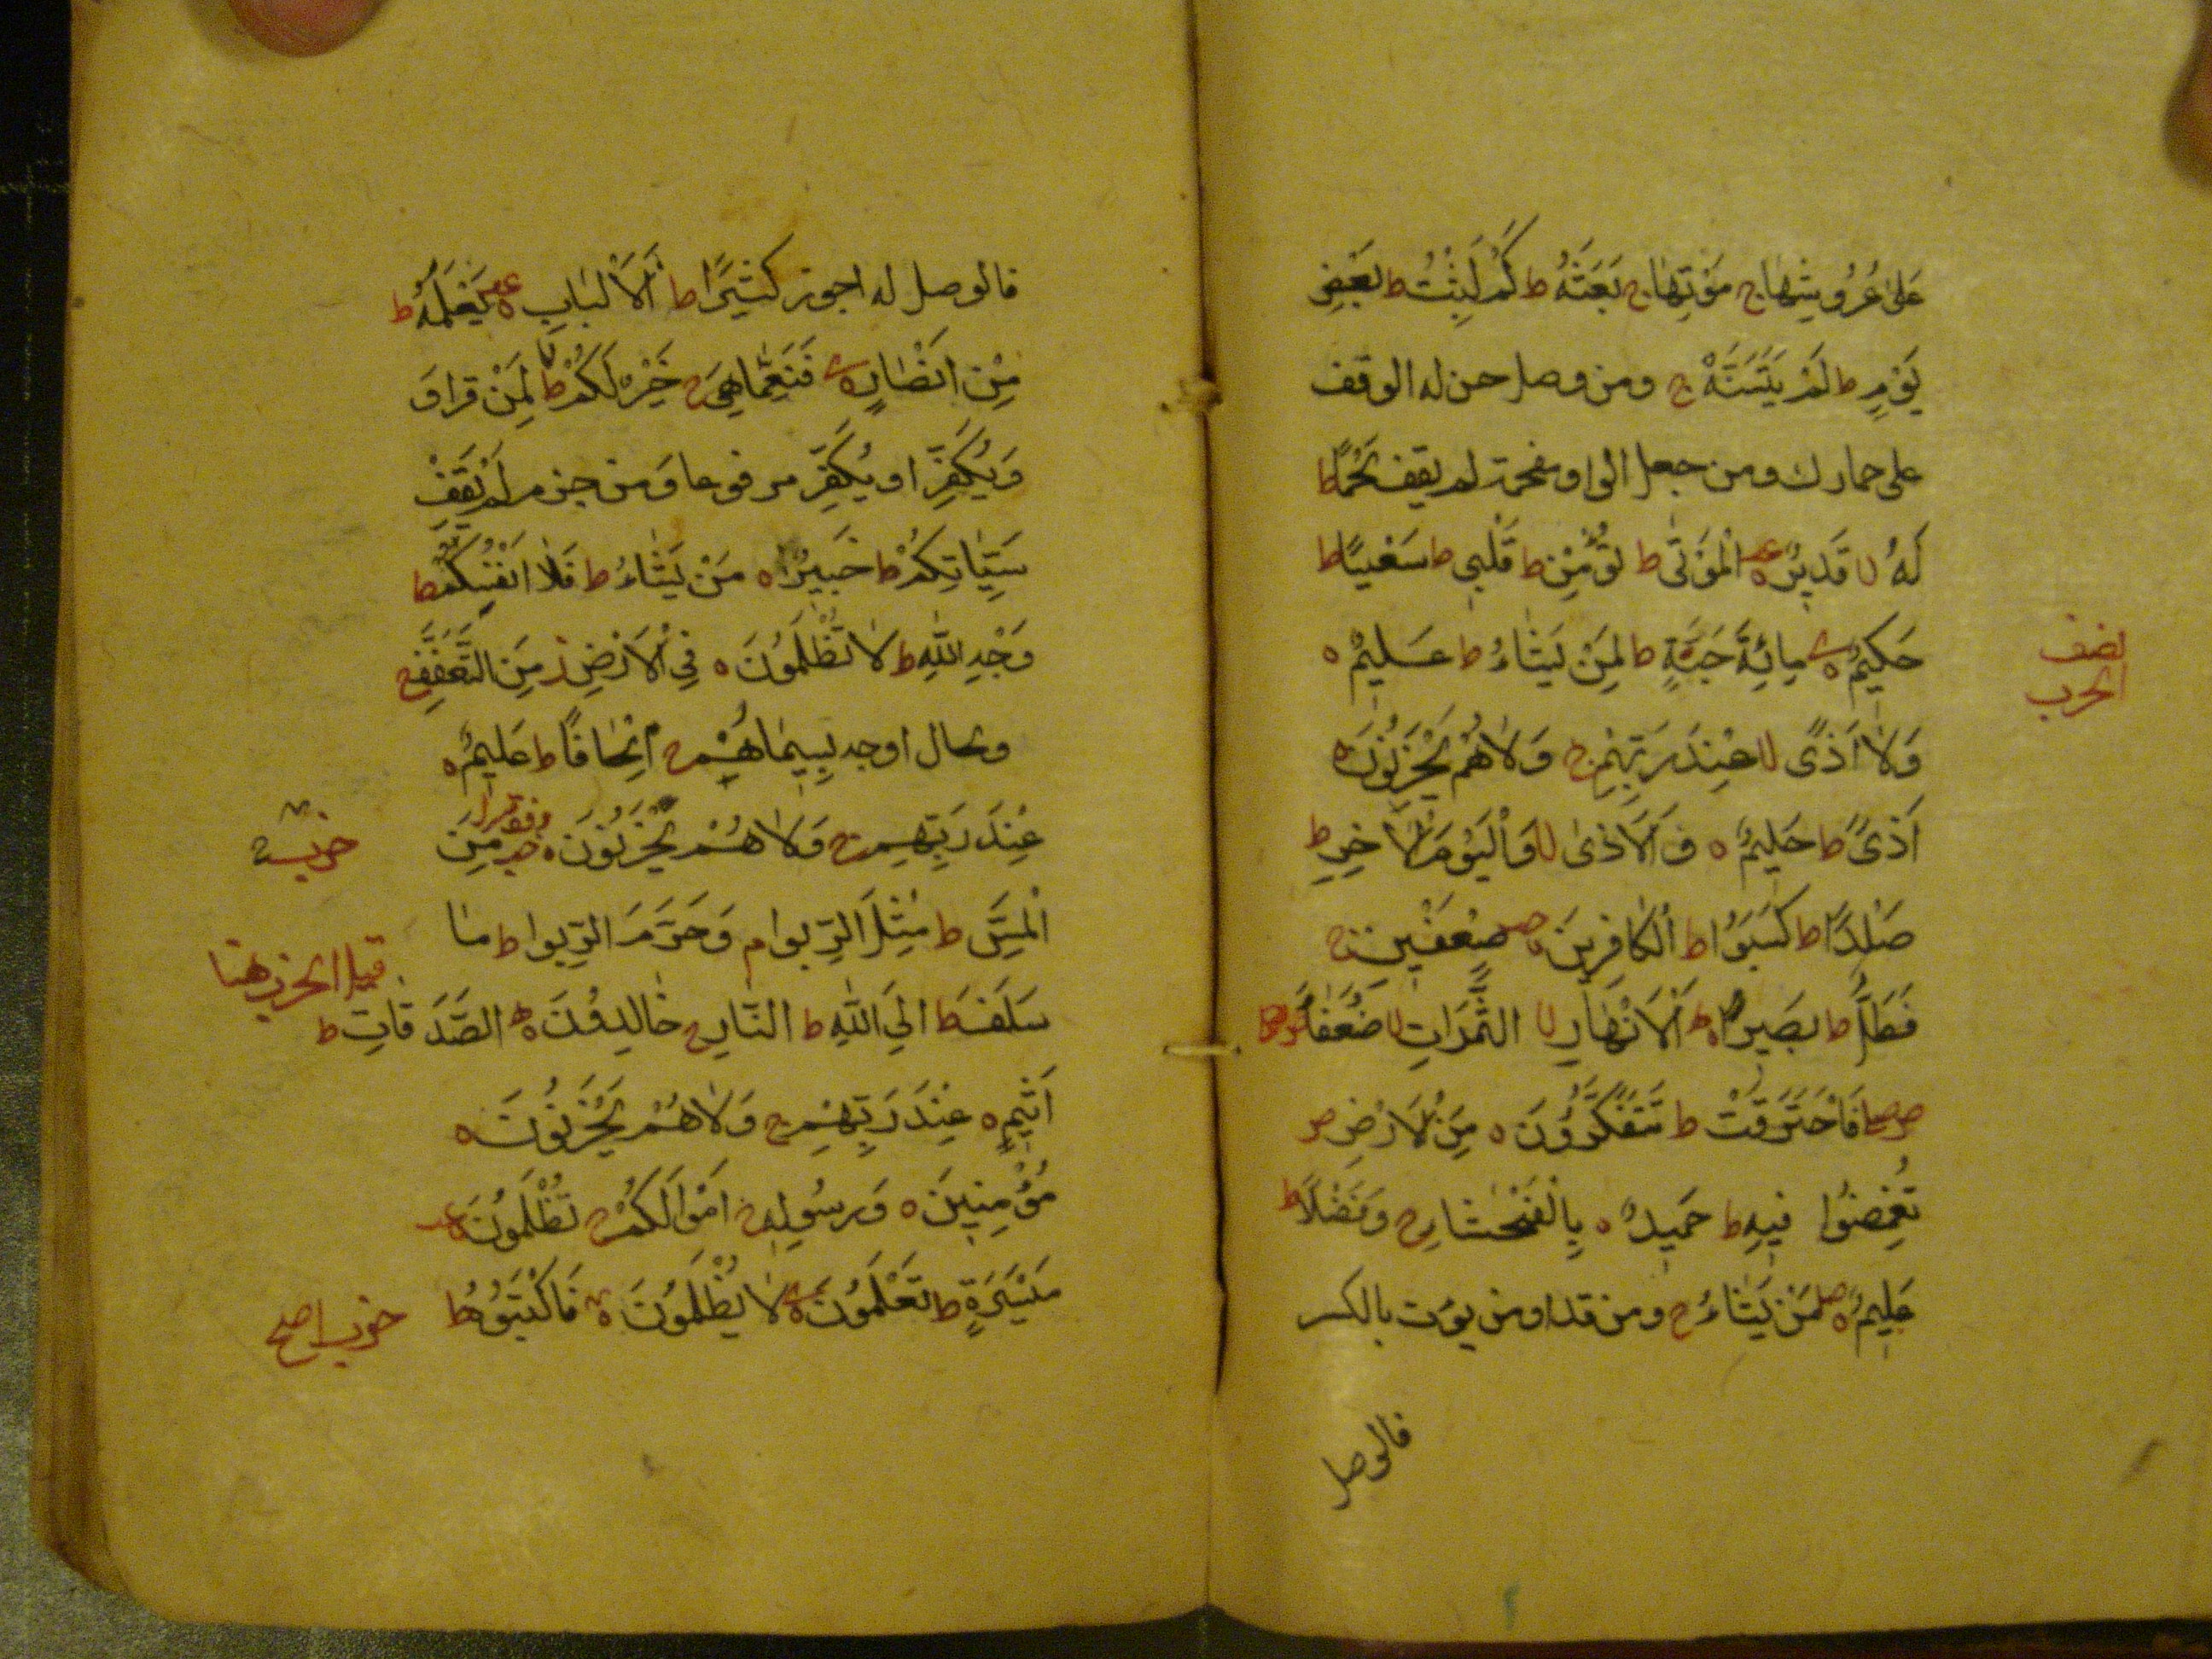 عَلىٰ عُرُوشِهَا ج مَوْتِهَا ج بَعَثَهُ ط كَمْ لَبِثْتَ ط بَعْضَ
يَوْمٍ ط لَمْ يَتَسَنَّهْ ج ومن وصل حسن له الوقف
على حمارك ومن جعل الواو مقحمة لم يقف لَحْمًا ط
لَهُ لا قَدِيرٌ ه الْمَوْتٰى ط تُؤْمِنْ ط قَلْبِي ط سَعْيًا ط
حَكِيمٌ ه مِائَةُ حَبَّةٍ ط لِمَنْ يَشَاءُ ط عَلِيمٌ ه
نصف
الحزب
وَلَا أَذًى لا عِنْدَ رَبِّهِمْ ج وَلَا هُمْ يَحْزَنُونَ ه
أَذًى ط حَلِيمٌ ه وَالْأَذٰى لا وَالْيَوْمِ الْآخِرِ ط
صَلْدًا ط كَسَبُوا ط الْكَافِرِينَ ه ضِعْفَيْنِ ج
فَطَلٌّ ط بَصِيرٌ ه الْأَنْهَارُ لا الثَّمَرَاتِ لا ضُعَفَاءُ
فَاحْتَرَقَتْ ط تَتَفَكَّرُونَ ه مِنَ الْأَرْضِ ص
تُغْمِضُوا فِيهِ ط حَمِيدٌ ه بِالْفَحْشَاءِ ج وَفَضْلًا ط
عَلِيمٌ ه مَنْ يَشَاءُ ج ومن قرا ومن يؤت بالكسر
فالوصل
فالوصل له اجوز كَثِيرًا ط الْأَلْبَابِ ه يَعْلَمُهُ ط
مِنْ أَنْصَارٍ ه فَنِعِمَّا هِيَ ج خَيْرٌ لَكُمْ ط لِمَنْ قرا وَ
وَيُكَفِّرُ او نُكَفِّرُ مرفوعا وَمن جزم لم يَقِفْ
سَيِّئَاتِكُمْ ط خَبِيرٌ ه مَنْ يَشَاءُ ط فَلِأَنْفُسِكُمْ ط
وَجْهِ اللهِ ط لَا تُظْلَمُونَ ه فِي الْأَرْضِ ز مِنَ التَّعَفُّفِ ج
وحال اوجد بِسِيمَاهُمْ ج إِلْحَافًا ط عَلِيمٌ ه
عِنْدَ رَبِّهِمْ ج وَلَا هُمْ يَحْزَنُونَ ه مِنَ
الْمَسِّ ط مِثْلُ الرِّبوا م وَحَرَّمَ الرِّبوا ط مَا
قيل الحزب هنا
سَلَفَ ط إِلَى اللهِ ط النَّارِ ج خَالِدُونَ ه الصَّدَقَاتِ ط
أَثِيمٍ ه عِنْدَ رَبِّهِمْ ج وَلَا هُمْ يَحْزَنُونَ ه
مُؤْمِنِينَ ه وَرَسُولِهِ ج أَمْوَالِكُمْ ج تُظْلَمُونَ
مَيْسَرَةٍ ط تَعْلَمُونَ ه لَا يُظْلَمُونَ ه فَاكْتُبُوهُ ط
حزب اصح